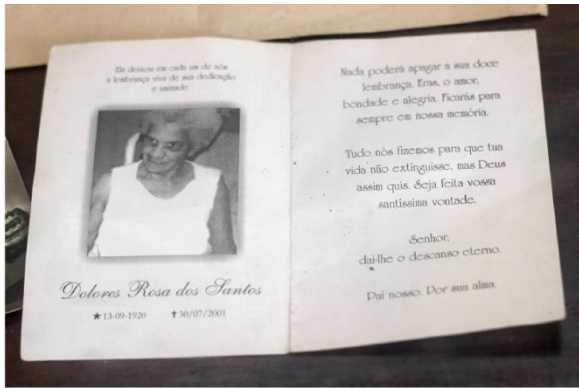 Ela deixou em cada um de nós
a lembrança viva de sua dedicação
e amizade
Dolores Rosa dos Santos
★ 13-09-1920 ✝ 30/07/2001
Nada poderá apagar a sua doce
lembrança. Eras, o amor,
bondade e alegria. Ficarás para
sempre em nossa memória.
Tudo nós fizemos para que tua
vida não extinguisse, mas Deus
assim quis. Seja feita vossa
santíssima vontade.
Senhor,
dai-lhe o descanso eterno.
Pai nosso. Por sua alma.